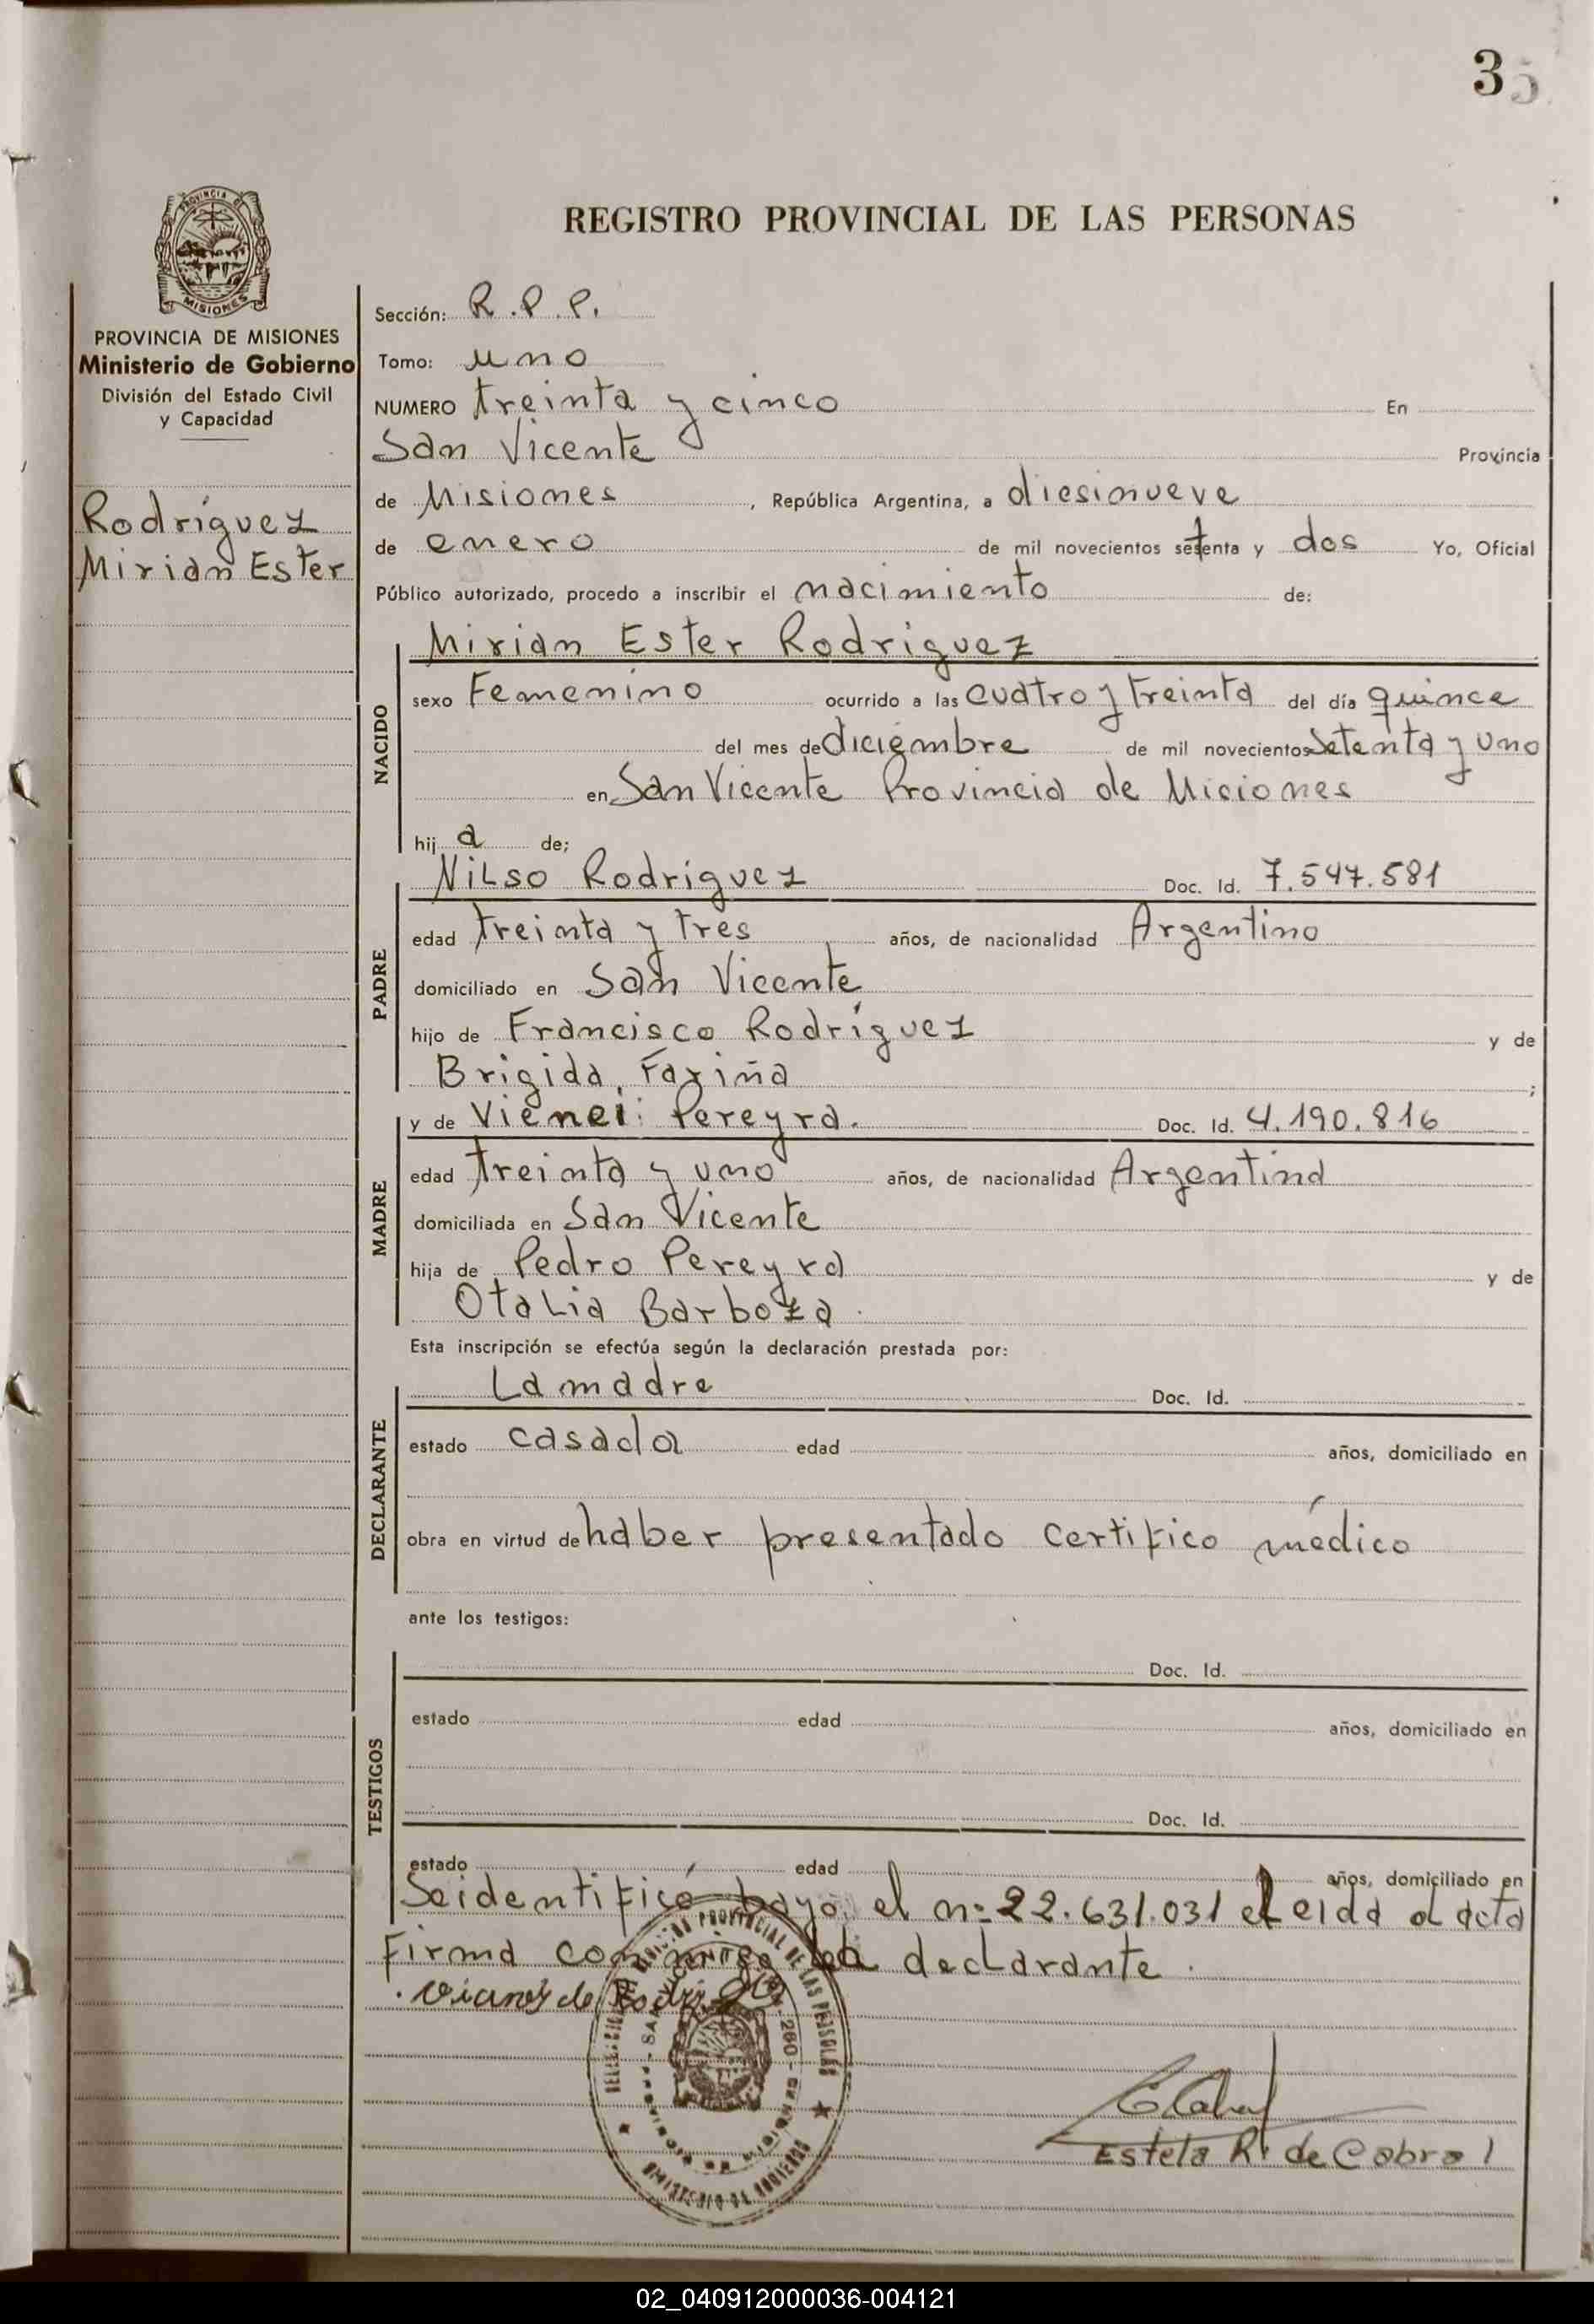 35
REGISTRO PROVINCIAL DE LAS PERSONAS
PROVINCIA DE
MISIONES
PROVINCIA DE MISIONES
Ministerio de Gobierno
División del Estado Civil
y Capacidad
Rodríguez
Mirian Ester
Sección: R.P.P.
Tomo: uno
NUMERO treinta y cinco En
San Vicente Provincia
de Misiones, República Argentina, a diesinueve
de enero de mil novecientos setenta y dos Yo, Oficial
Público autorizado, procedo a inscribir el nacimiento de:
NACIDO
Mirian Ester Rodriguez
sexo Femenino ocurrido a las cuatro y treinta del día quince
del mes de diciembre de mil novecientos setenta y uno
en San Vicente Provincia de Misiones
hij a de;
PADRE
Nilso Rodríguez Doc. Id. 7.547.581
edad treinta y tres años, de nacionalidad Argentino
domiciliado en San Vicente
hijo de Francisco Rodríguez y de
Brigida Fariña ;
MADRE
y de Vienei Pereyra. Doc. Id. 4.190.816
edad treinta y uno años, de nacionalidad Argentina
domiciliada en San Vicente
hija de Pedro Pereyra y de
Otalia Barboza.
Esta inscripción se efectúa según la declaración prestada por:
DECLARANTE
La madre Doc. Id.
estado casada edad años, domiciliado en
obra en virtud de haber presentado certifico médico
ante los testigos:
TESTIGOS
Doc. Id.
estado edad años, domiciliado en
Doc. Id.
estado edad años, domiciliado en
Se identificó bayo el nº 22.631.031 el eida el acta
Firma conmigo la declarante.
de
PROVINCIAL DE LAS PERSONAS
260
MINISTERIO DE GOBIERNO
Estela R. de Cabral
02_040912000036-004121